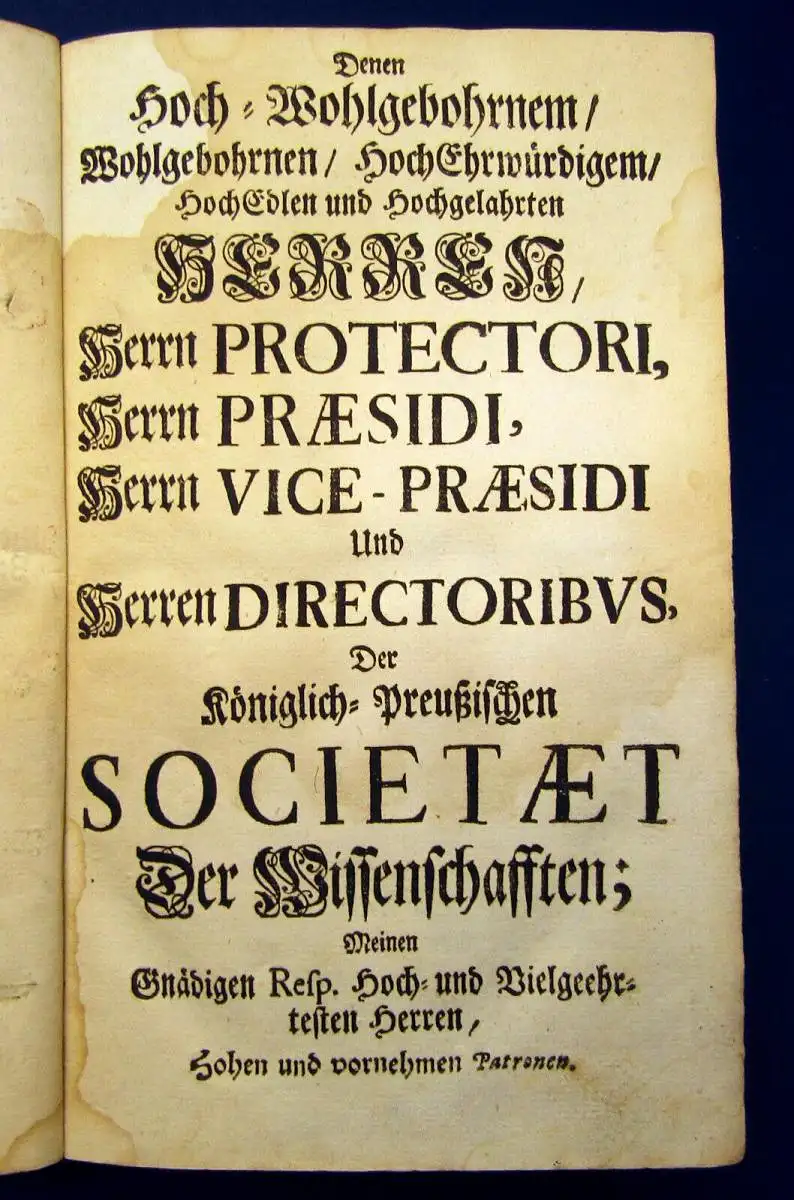 Denen
Hoch-Wohlgebohrnem/
Wohlgebohrnen/ HochEhrwürdigem/
HochEdlen und Hochgelahrten
HERREN/
Herrn PROTECTORI,
Herrn PRÆSIDI,
Herrn VICE-PRÆSIDI
Und
Herren DIRECTORIBVS,
Der
Königlich-Preußischen
SOCIETÆT
Der Wissenschafften;
Meinen
Gnädigen Resp. Hoch-und Vielgeehr-
testen Herren/
Hohen und vornehmen Patronen.